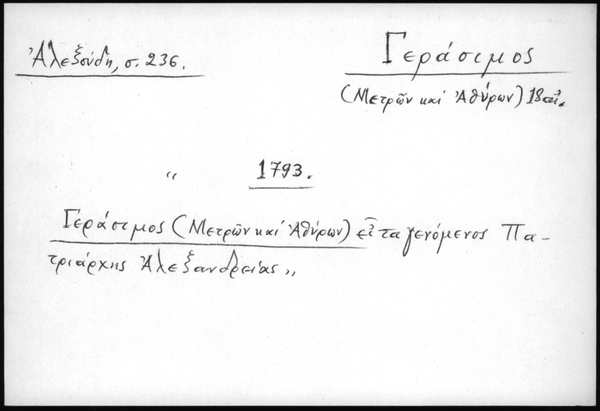 Ἀλεξούδη, σ. 236.
Γεράσιμος
(Μετρῶν καὶ Ἀθύρων) 18 αἰ.
“ 1793.
Γεράσιμος (Μετρῶν καὶ Ἀθύρων) εἶτα γενόμενος Πα-
τριάρχης Ἀλεξανδρείας„